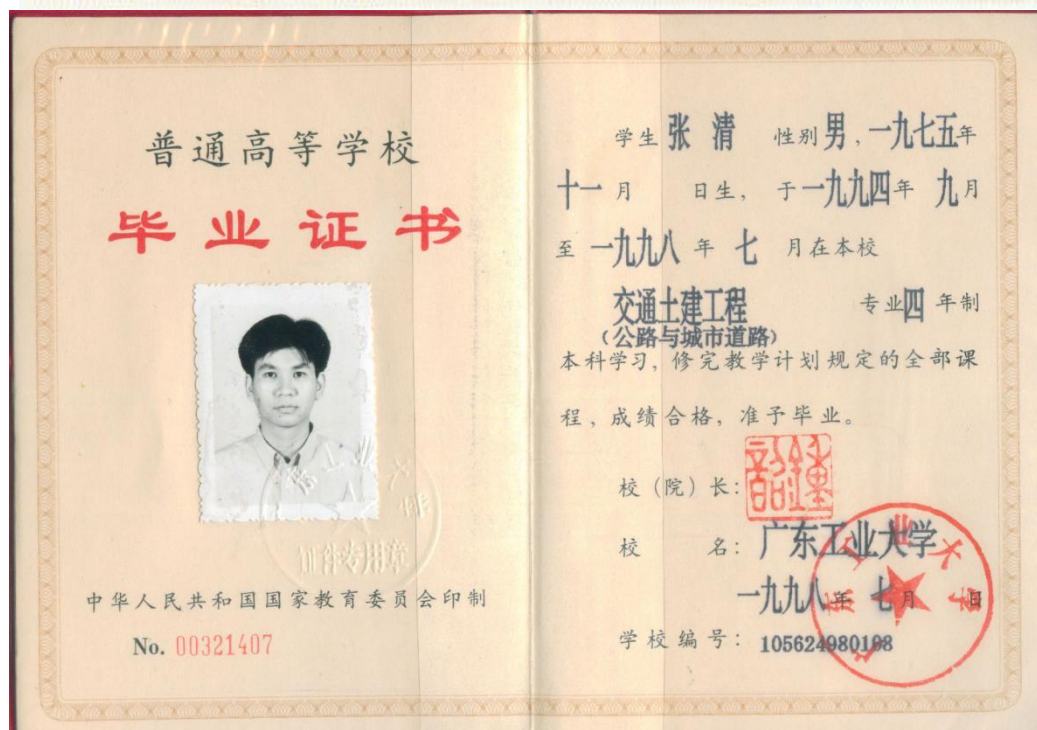 普通高等学校
毕业证书
证件专用章
中华人民共和国国家教育委员会印制
No. 00321407
学生 张 清 性别 男，一九七五年
十一 月 日生，于一九九四年 九月
至 一九九八 年 七 月在本校
交通土建工程 专业四 年制
（公路与城市道路）
本科学习，修完教学计划规定的全部课
程，成绩合格，准予毕业。
校（院）长：
校 名：广东工业大学
一九九八年 七月 日
学校编号：105624980198
广东工业大学